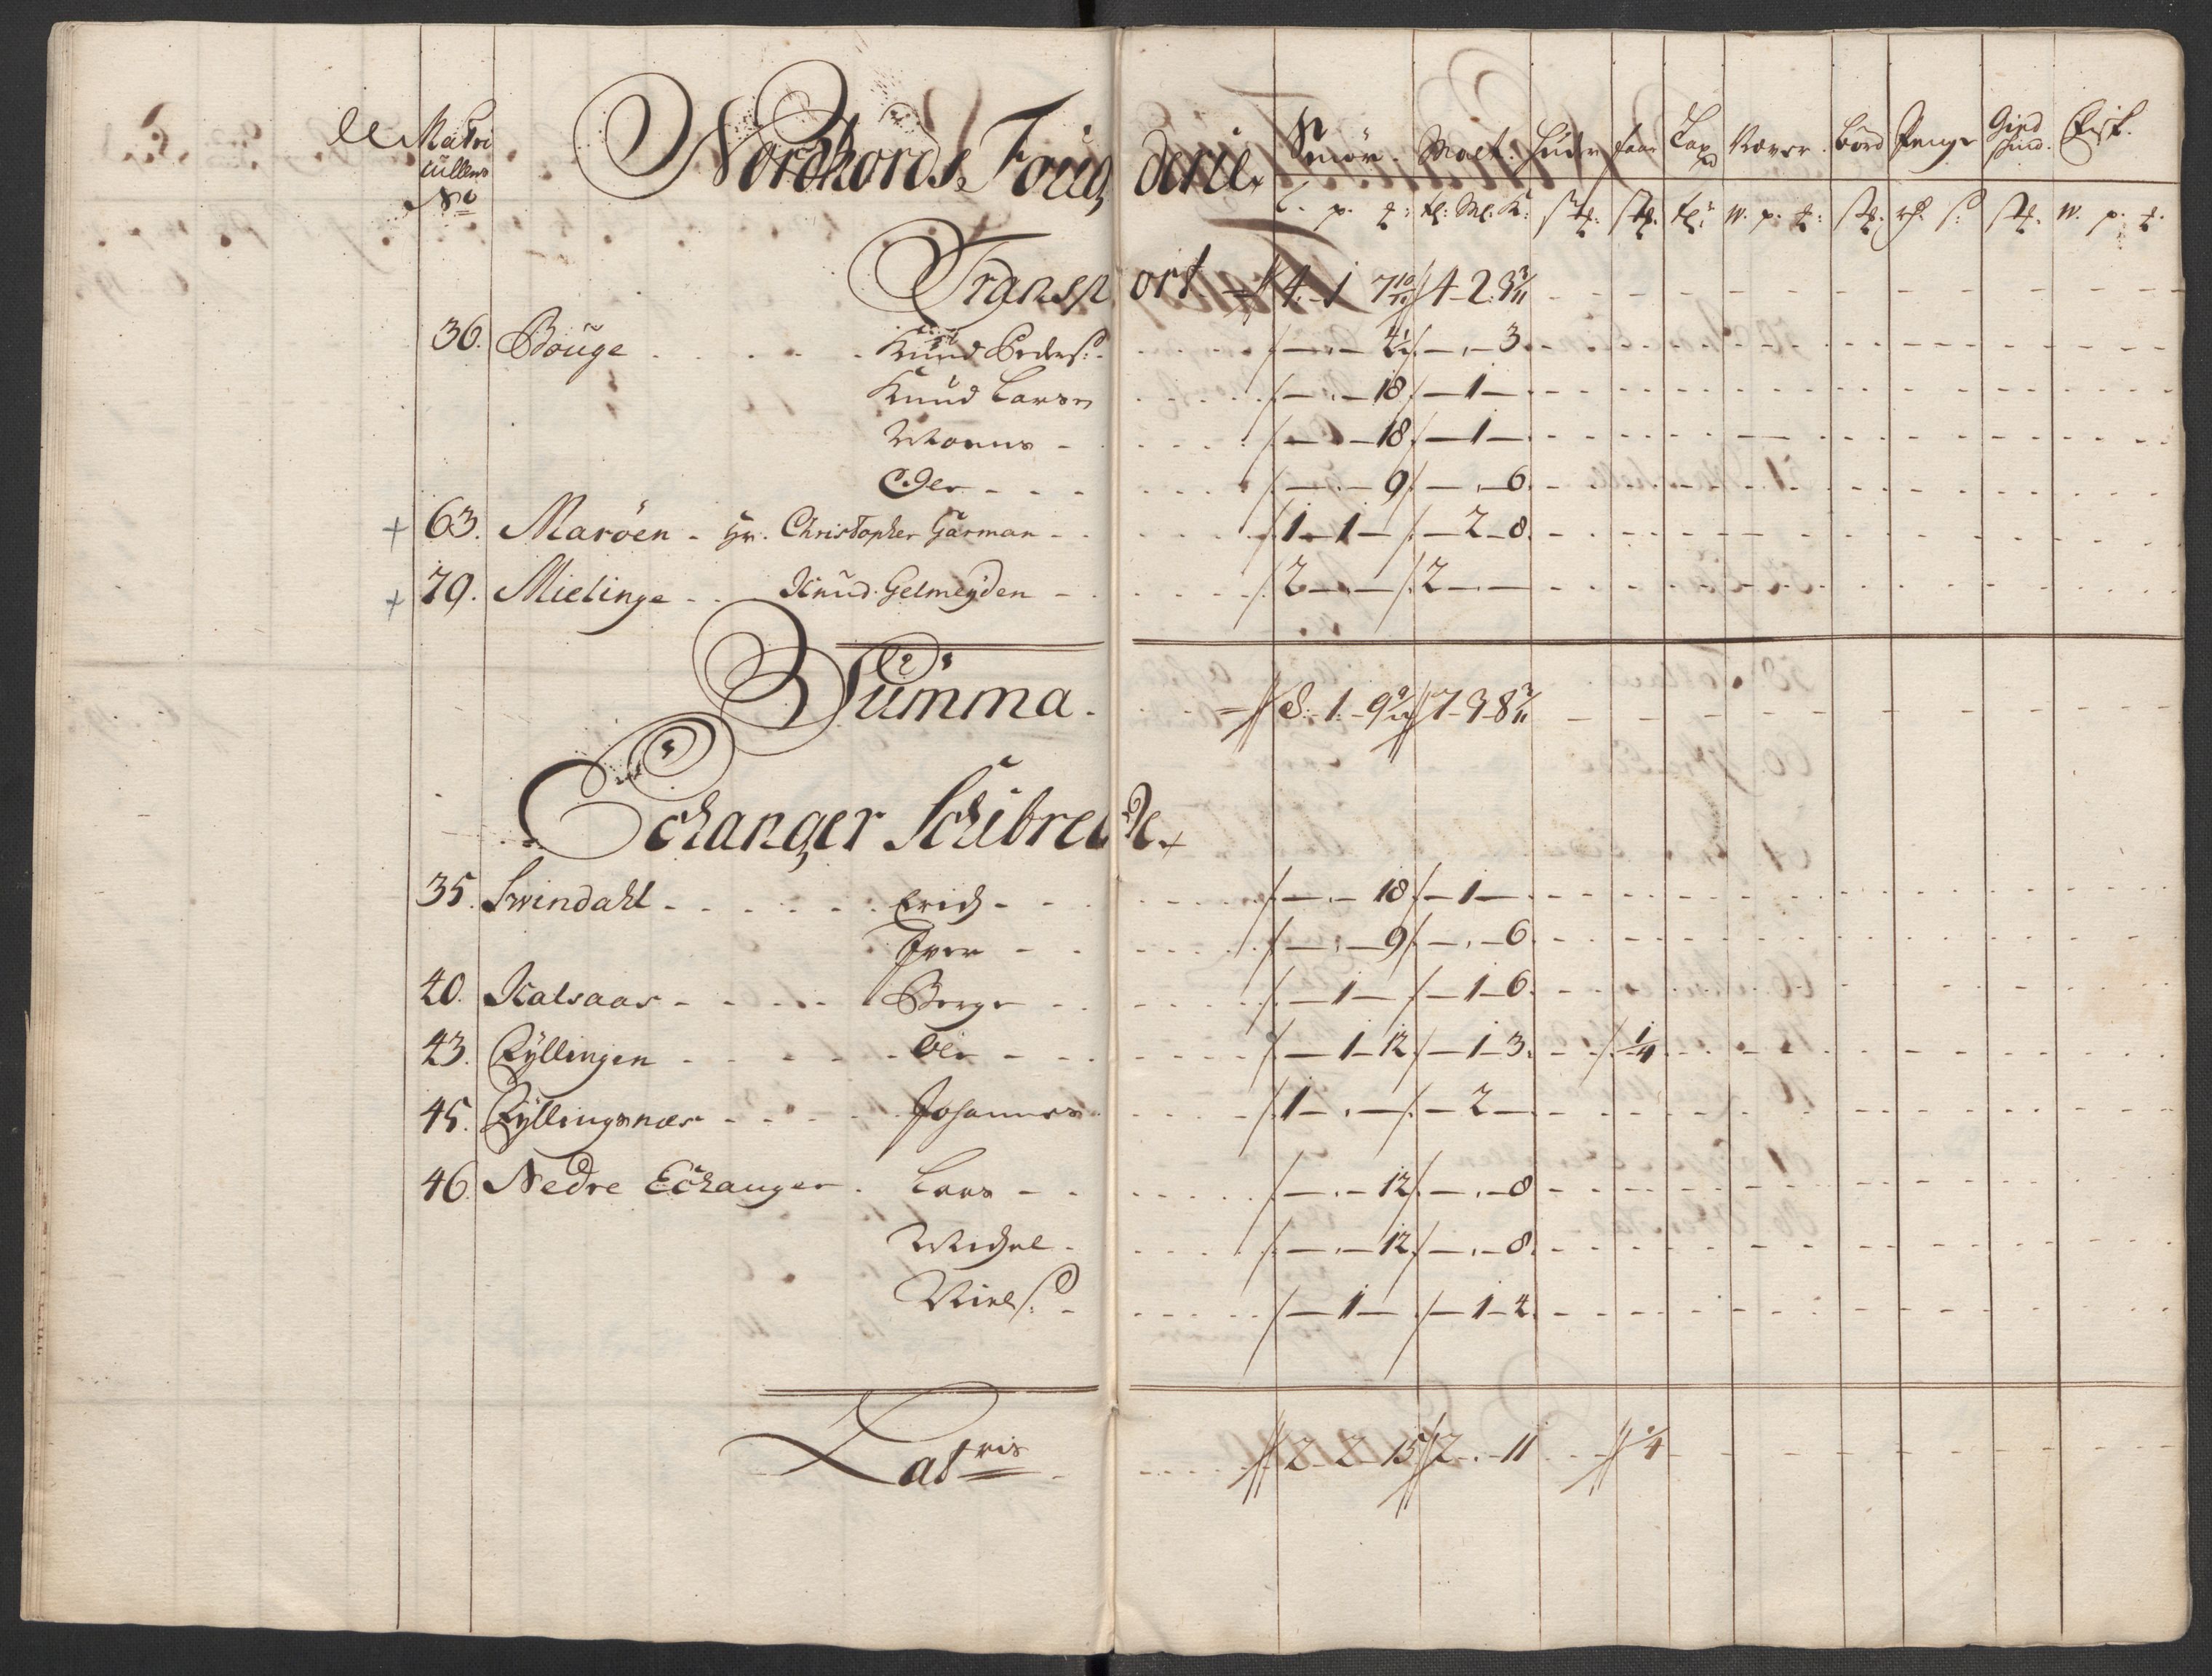 Matri Nordhords Fougderie. Smör. Malt. Huder faar Nower. Bord Penge Gied Fisk.
cüllens
No
L. p. ℔: stk: stk. W. p: ℔: stk. rd. s: stk. W. p. ℔.
Transport 4 - 1 7 10/11 4 - 2. 3 3/11
36. Böuge Knud Peders: 3
Knud Larsen 18 1
Mons 18 1
Ole 9 6
+ 63. Maröen - Hr. Christopher Garman 1 - 1 2 - 8
+ 79. Mielinge Knud Gelmeÿden 2 2
Summa. 8. 1. 9 9/11 7 - 3 - 8 3/11
Echanger Schibrede.
35. Swindahl Erich 18 1
Iver 9 6
40. Kalsaas Berge 1 1 - 6
43. Ryllingen Ole 1 - 12 1 - 3 1/4
45. Ryllingsnes Johannes 1 2
46. Nedre Echanger Lars 12 8
Michel 12 8
Niels: 1 1 - 4
Latris 2 - 2 - 15 2 - 11 1/4